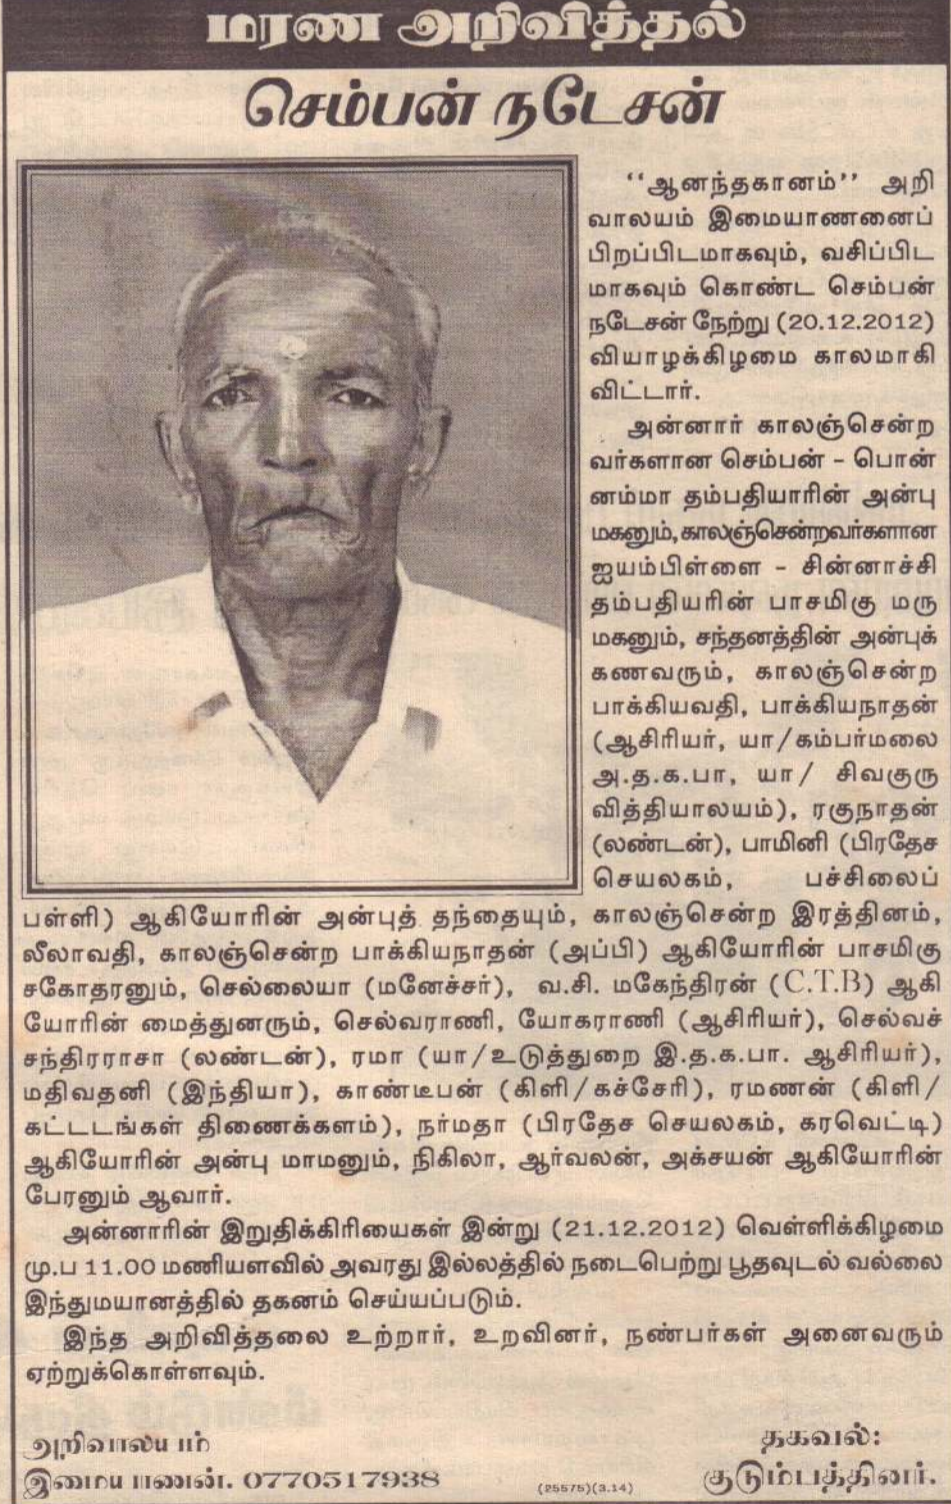 மரண அறிவித்தல்
செம்பன் நடேசன்
‘‘ஆனந்தகானம்’’ அறி
வாலயம் இமையாணனைப்
பிறப்பிடமாகவும், வசிப்பிட
மாகவும் கொண்ட செம்பன்
நடேசன் நேற்று (20.12.2012)
வியாழக்கிழமை காலமாகி
விட்டார்.
அன்னார் காலஞ்சென்ற
வர்களான செம்பன் - பொன்
னம்மா தம்பதியாரின் அன்பு
மகனும்,காலஞ்சென்றவர்களான
ஐயம்பிள்ளை - சின்னாச்சி
தம்பதியரின் பாசமிகு மரு
மகனும், சந்தனத்தின் அன்புக்
கணவரும், காலஞ்சென்ற
பாக்கியவதி, பாக்கியநாதன்
(ஆசிரியர், யா/கம்பர்மலை
அ.த.க.பா, யா/ சிவகுரு
வித்தியாலயம்), ரகுநாதன்
(லண்டன்), பாமினி (பிரதேச
செயலகம், பச்சிலைப்
பள்ளி) ஆகியோரின் அன்புத் தந்தையும், காலஞ்சென்ற இரத்தினம்,
லீலாவதி, காலஞ்சென்ற பாக்கியநாதன் (அப்பி) ஆகியோரின் பாசமிகு
சகோதரனும், செல்லையா (மனேச்சர்), வ.சி. மகேந்திரன் (C.T.B) ஆகி
யோரின் மைத்துனரும், செல்வராணி, யோகராணி (ஆசிரியர்), செல்வச்
சந்திரராசா (லண்டன்), ரமா (யா/உடுத்துறை இ.த.க.பா. ஆசிரியர்),
மதிவதனி (இந்தியா), காண்டீபன் (கிளி/கச்சேரி), ரமணன் (கிளி/
கட்டடங்கள் திணைக்களம்), நர்மதா (பிரதேச செயலகம், கரவெட்டி)
ஆகியோரின் அன்பு மாமனும், நிகிலா, ஆர்வலன், அக்சயன் ஆகியோரின்
பேரனும் ஆவார்.
அன்னாரின் இறுதிக்கிரியைகள் இன்று (21.12.2012) வெள்ளிக்கிழமை
மு.ப 11.00 மணியளவில் அவரது இல்லத்தில் நடைபெற்று பூதவுடல் வல்லை
இந்துமயானத்தில் தகனம் செய்யப்படும்.
இந்த அறிவித்தலை உற்றார், உறவினர், நண்பர்கள் அனைவரும்
ஏற்றுக்கொள்ளவும்.
அறிவாலயம்
இமையாணன். 0770517938
(25575)(3.14)
தகவல்:
குடும்பத்தினர்.